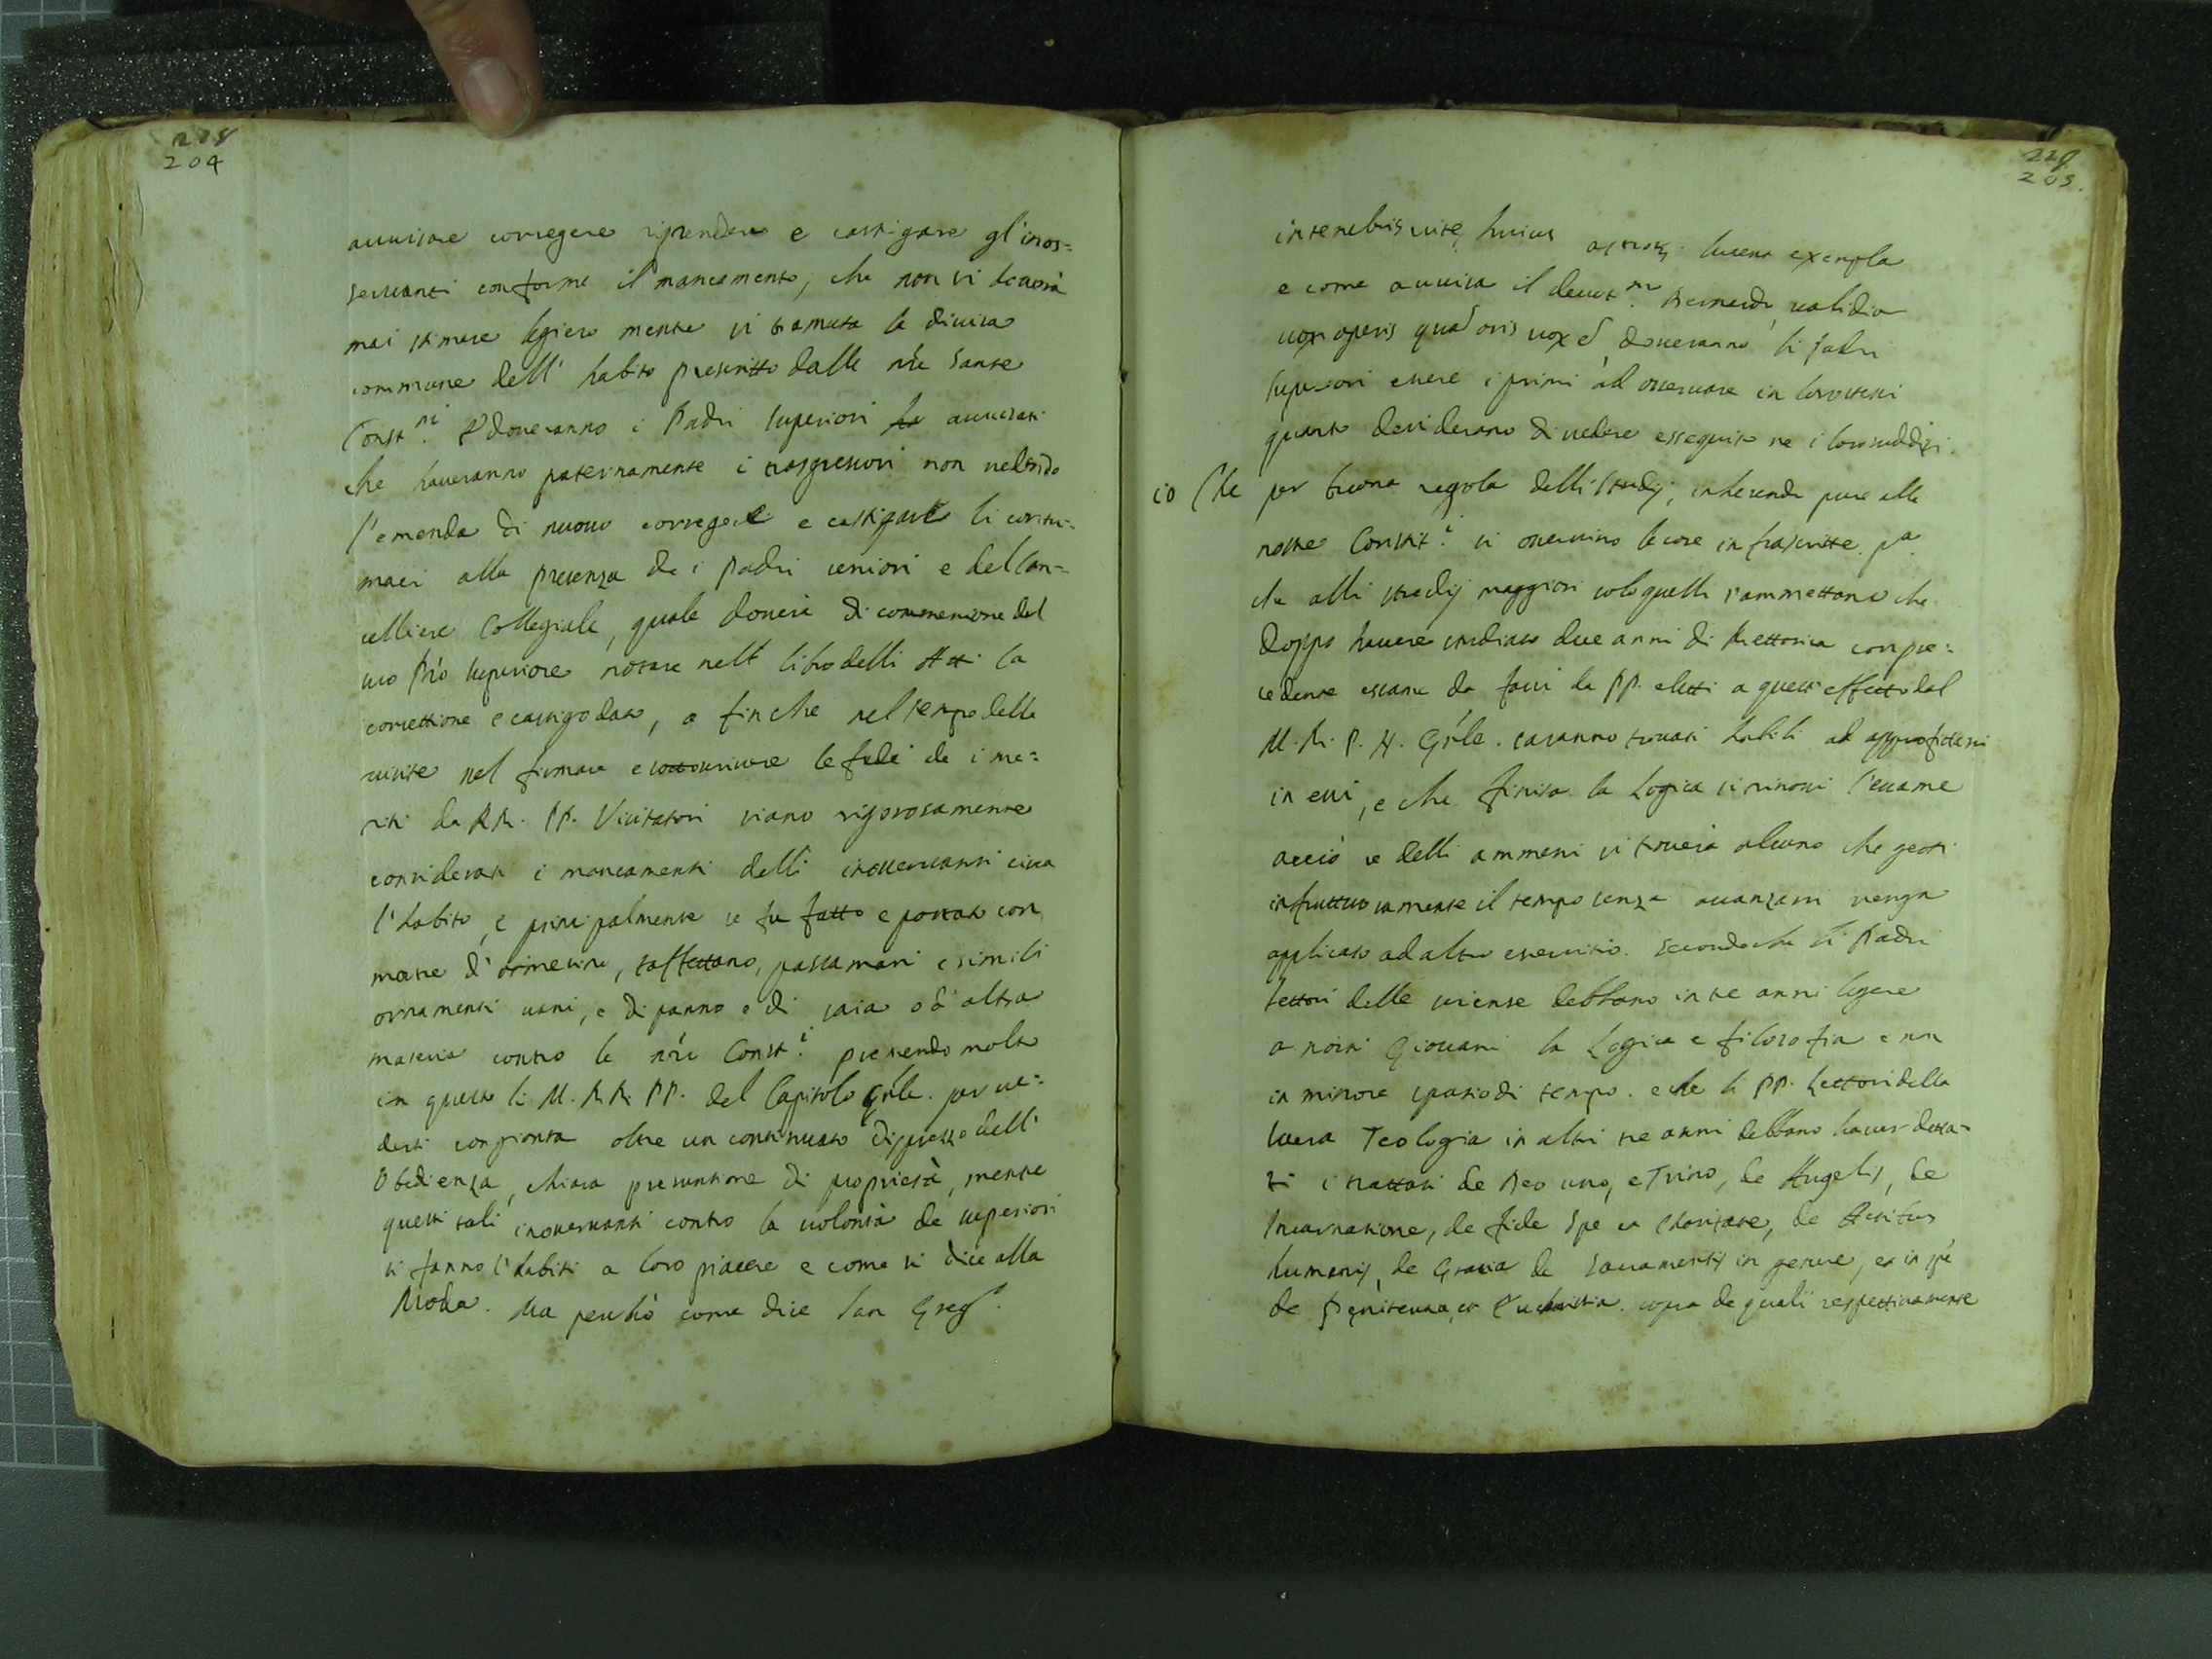 228
204
auuisare corregere riprendere e castigare gl'inos=
seruanti conforme il mancamento, che non si douerà
mai stimare legiero mentre si tramuta la diuisa
commune dell' habito prescritto dalle n're Sante
Const.ni E doueranno i Padri Superiori auuisati
che haueranno paternamente i trasgressori non uedendo
l'emenda di nuouo corregere e castigare li contu=
maci alla presenza de i Padri seniori e del Can=
celliere Collegiale, quale douerà di commessione del
suo P're Superiore notare nell libro delli Atti la
correttione e castigo dato, a fin che nel tempo delle
uisite nel firmare e sottoscriuere le fedi de i me=
riti da RR. PP. Visitatori siano rigorosamente
considerati i mancamenti delli inosseruanti circa
l'habito, e principalmente se fu fatto e portato con
mostre d'ormesino, taffettano, passamani e simili
ornamenti uani, e di panno o di saia o d'altra
materia contro le n're Const.i premendo molto
in questo li M.RR. PP. del Capitolo G'nle. per ue=
dersi congionta oltre un continuato disprezzo dell'
Obedienza, chiara presuntione di proprietà, mentre
questi tali inosseruanti contro la uolontà de superiori
si fanno l'habiti a loro piacere e come si dice alla
Moda. Ma perchè come dice San Greg.
229
205.
in tenebris uitę huius lucent exempla
e come auuisa il deuot.mo Bernardo, ualidior
uox operis quàm oris uox est, doueranno li Padri
Superiori essere i primi ad osseruare in loro stessi
quanto desiderano di uedere essequito ne i loro sudditi.
10 Che per buona regola delli Studij, inherendo pure alle
nostre Constit.i si osseruino le cose infrascritte. p.a
che alli studij maggiori solo quelli s'ammettano che
doppo hauere studiato due anni di Rettorica con pre=
cedente esame da farsi da PP. eletti a quest'effetto dal
M.R.P.N. G'nle. saranno trouati habili ad approfittarsi
in essi, e che finita la Logica si rinoui l'esame
acciò se delli ammessi si trouerà alcuno che getti
infruttuosamente il tempo senza auanzarsi uenga
applicato ad altro esercitio. Secondo che li Padri
Lettori delle scienze debbano in tre anni legere
a nostri Giouani la Logica e filosofia e non
in minore spatio di tempo. e che li PP. Lettori della
sacra Teologia in altri tre anni debbano hauer detta=
ti i trattati de Deo uno, e Trino, de Angelis, de
Incarnatione, de fide Spe et Charitate, de Actibus
humanis, de Gratia de Sacramentis in genere, et in spe
de Pęnitentia, et Eucharistia. sopra de quali respettiuamente